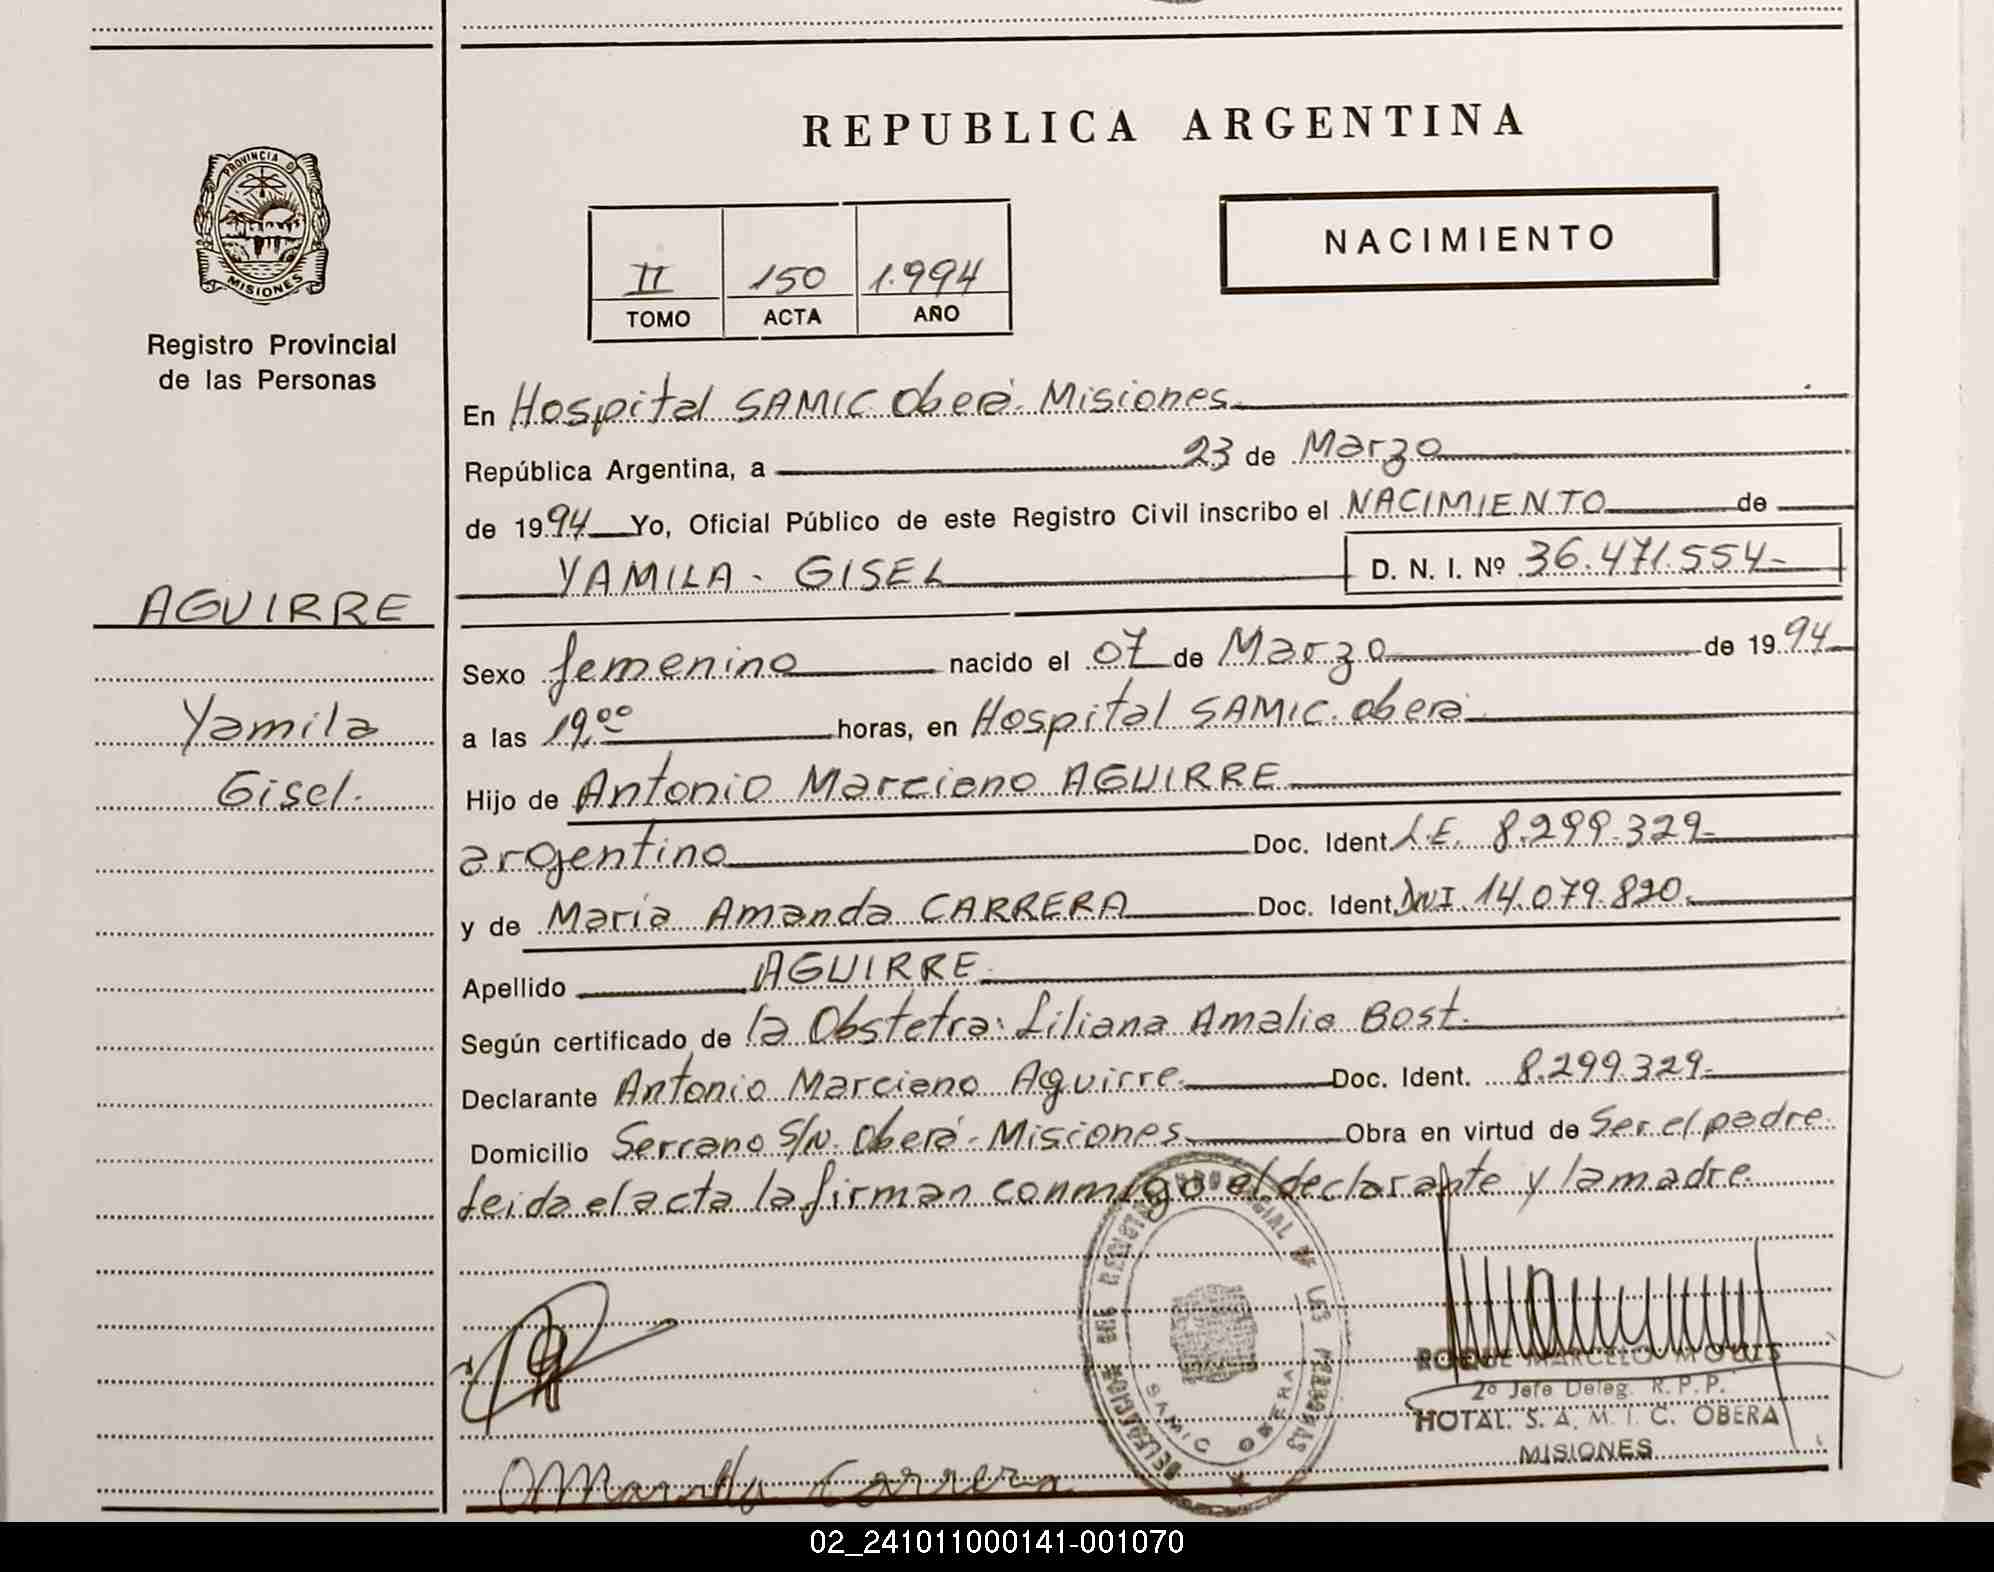 REPUBLICA ARGENTINA
PROVINCIA DE
MISIONES
Registro Provincial
de las Personas
NACIMIENTO
II 150 1.994
TOMO ACTA AÑO
En Hospital SAMIC Oberá. Misiones.
República Argentina, a 23 de Marzo
de 1994 Yo, Oficial Público de este Registro Civil inscribo el NACIMIENTO de
YAMILA - GISEL D. N. I. Nº 36.471.554-
AGUIRRE
Yamila
Gisel.
Sexo femenino nacido el 07 de Marzo de 1994
a las 19,00 horas, en Hospital SAMIC. Oberá
Hijo de Antonio Marciano AGUIRRE
argentino Doc. Ident. L.E. 8.299.329-
y de María Amanda CARRERA Doc. Ident. DNI. 14.079.820.
Apellido AGUIRRE
Según certificado de la Obstetra: Liliana Amalia Bost.
Declarante Antonio Marciano Aguirre Doc. Ident. 8.299.329-
Domicilio Serrano S/N. Oberá - Misiones Obra en virtud de Ser el padre.
Leida el acta la firman conmigo el declarante y la madre.
DELEGACION DEL REGISTRO PROVINCIAL DE LAS PERSONAS
SAMIC OBERA
ROQUE MARCELO
2º Jefe Deleg. R. P. P.
HOTAL. S. A. M. I. C. OBERA
MISIONES
Carrera
02_241011000141-001070